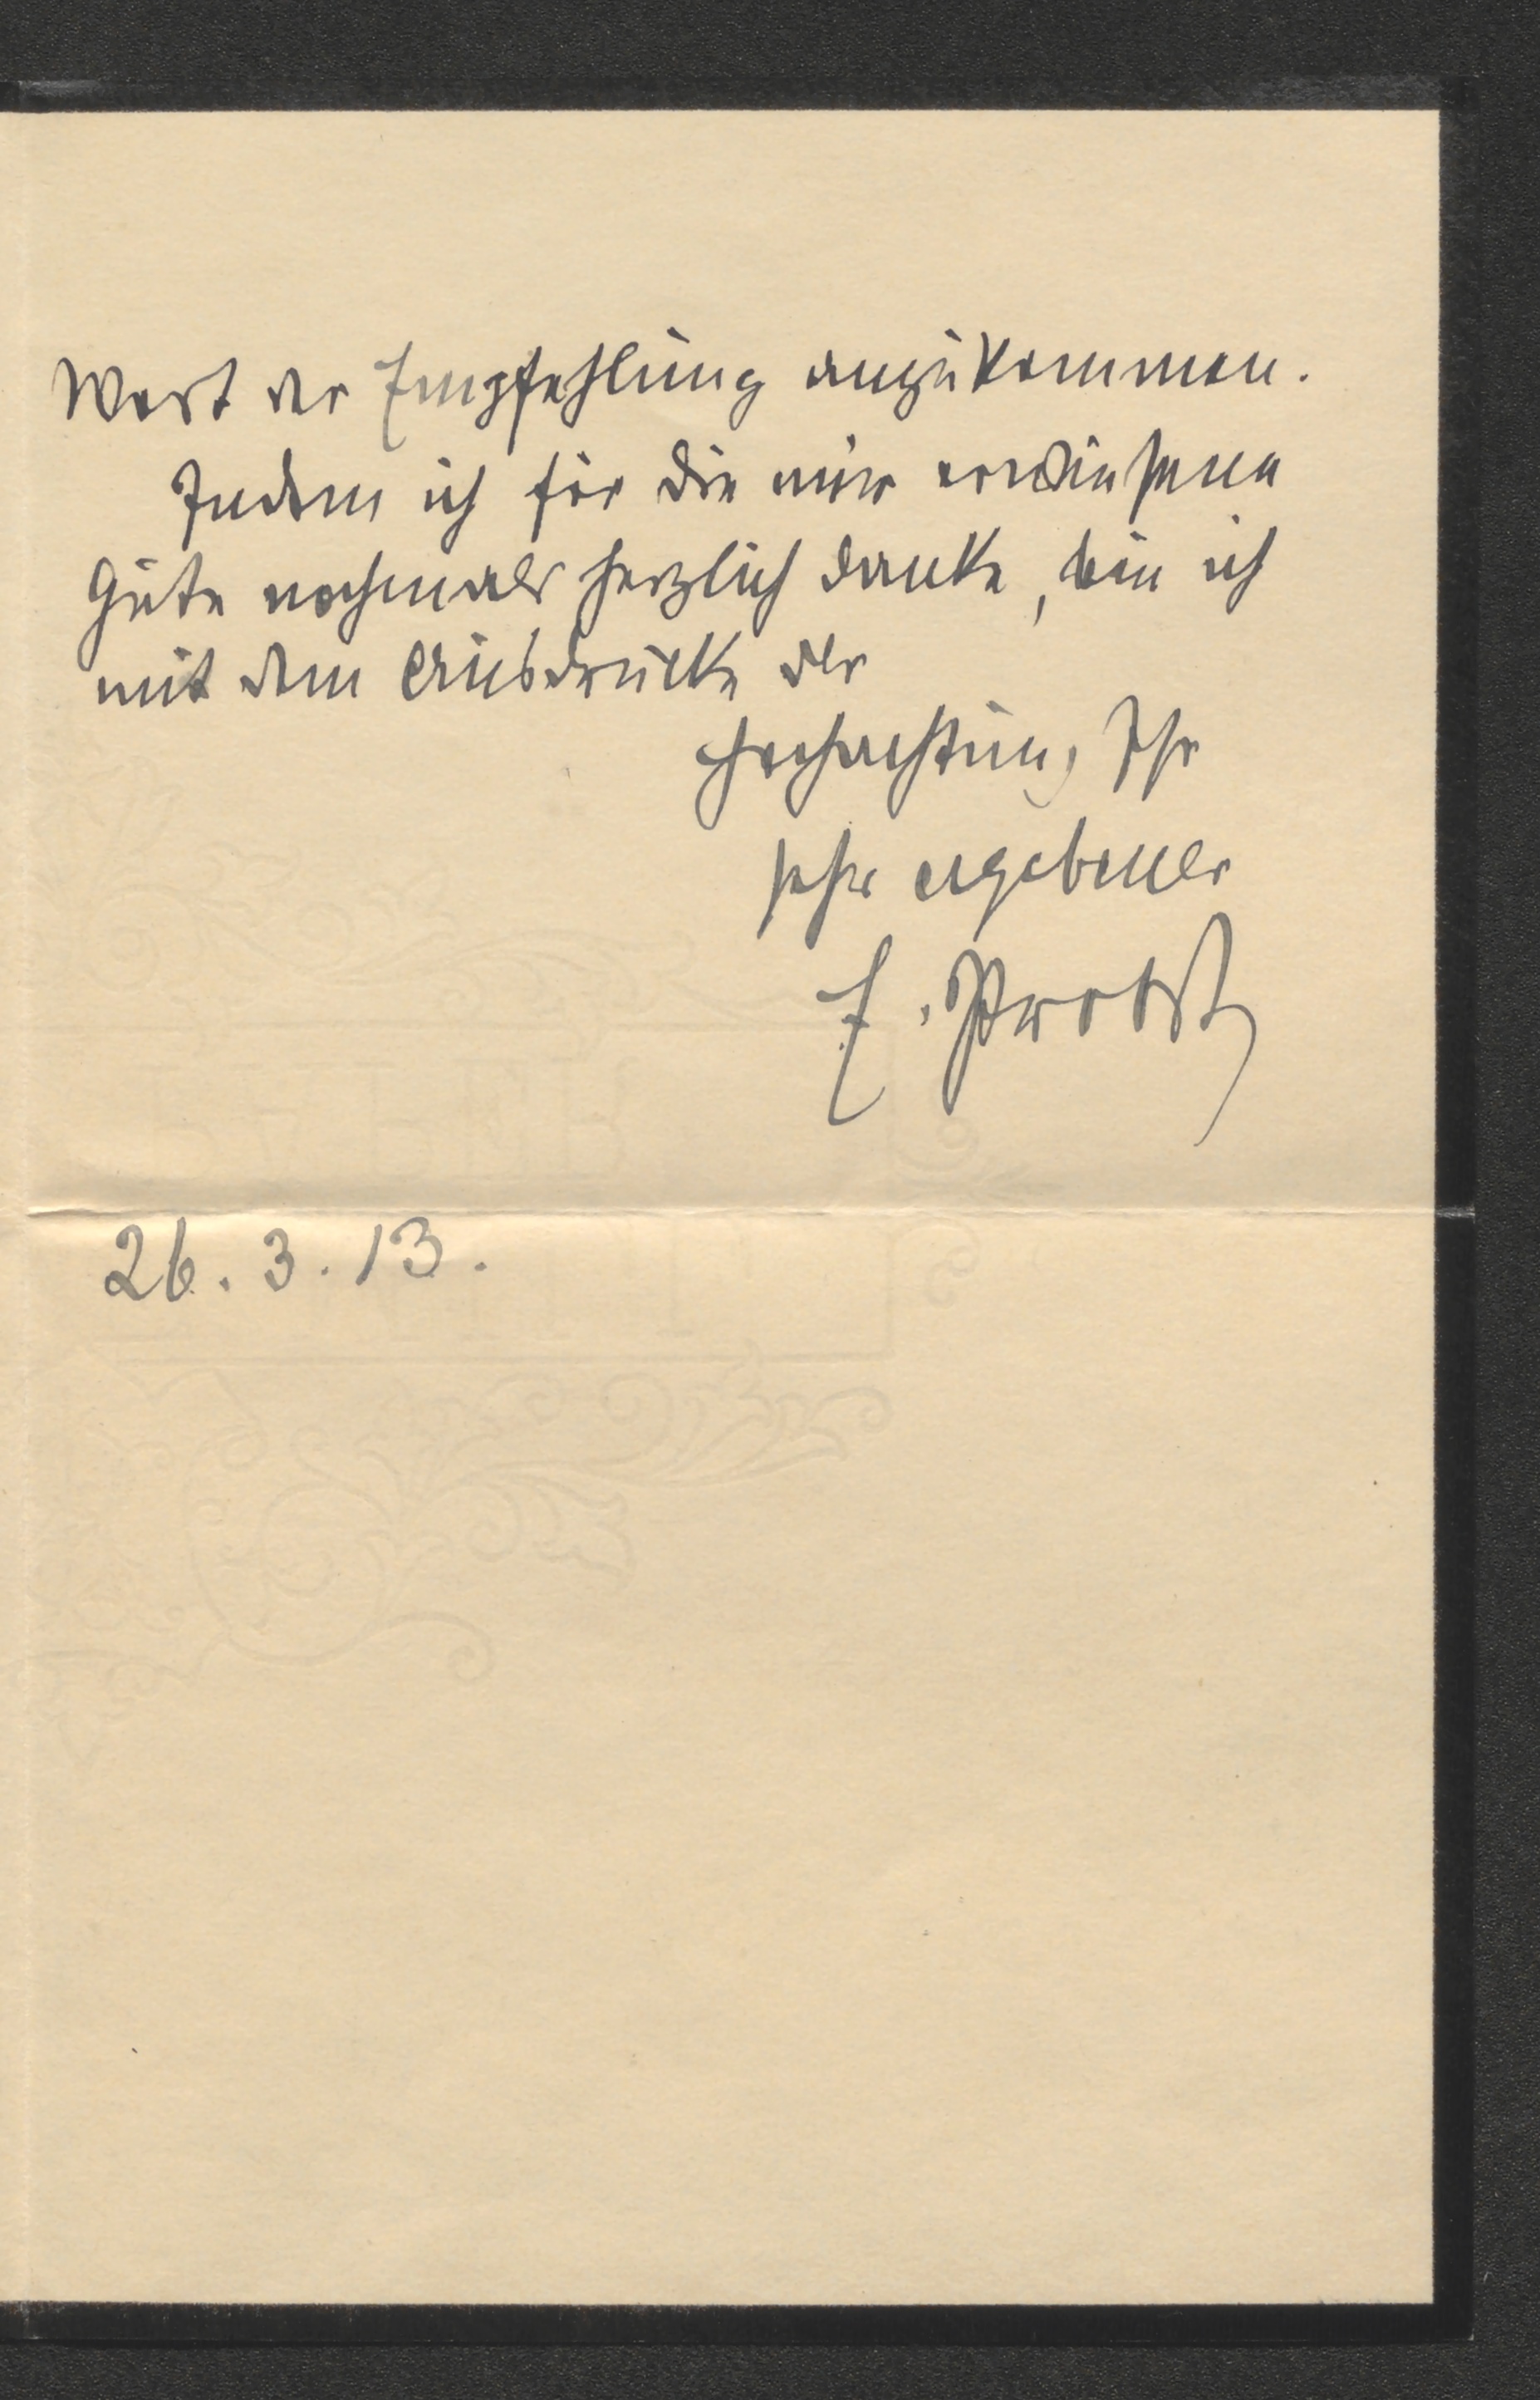 Wort der Empfehlung anzukommen.
Indem ich für die mir erwiesene
Güte nochmals herzlich danke, bin ich
mit dem Ausdrucke der
Hochachtung Ihr
sehr ergebener
E. Probst
26. 3. 13.